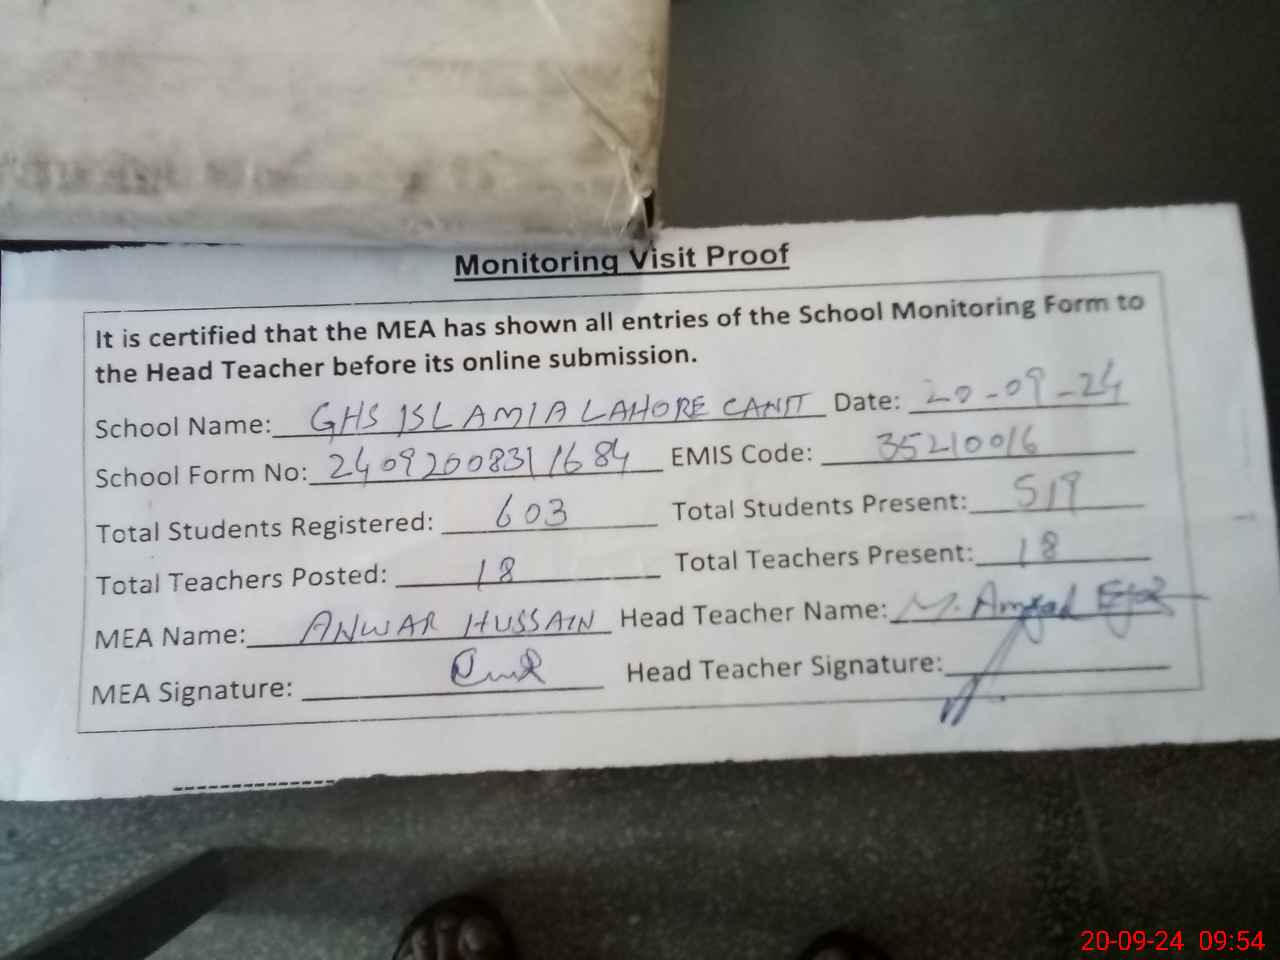 Monitoring Visit Proof
It is certified that the MEA has shown all entries of the School Monitoring Form to
the Head Teacher before its online submission.
School Name: GHS ISLAMIA LAHORE CANTT Date: 20-09-24
School Form No: 24092008311684 EMIS Code: 35210016
Total Students Registered: 603 Total Students Present: 519
Total Teachers Posted: 18 Total Teachers Present: 18
MEA Name: ANWAR HUSSAIN Head Teacher Name: M. Amjad
MEA Signature: Head Teacher Signature:
20-09-24 09:54